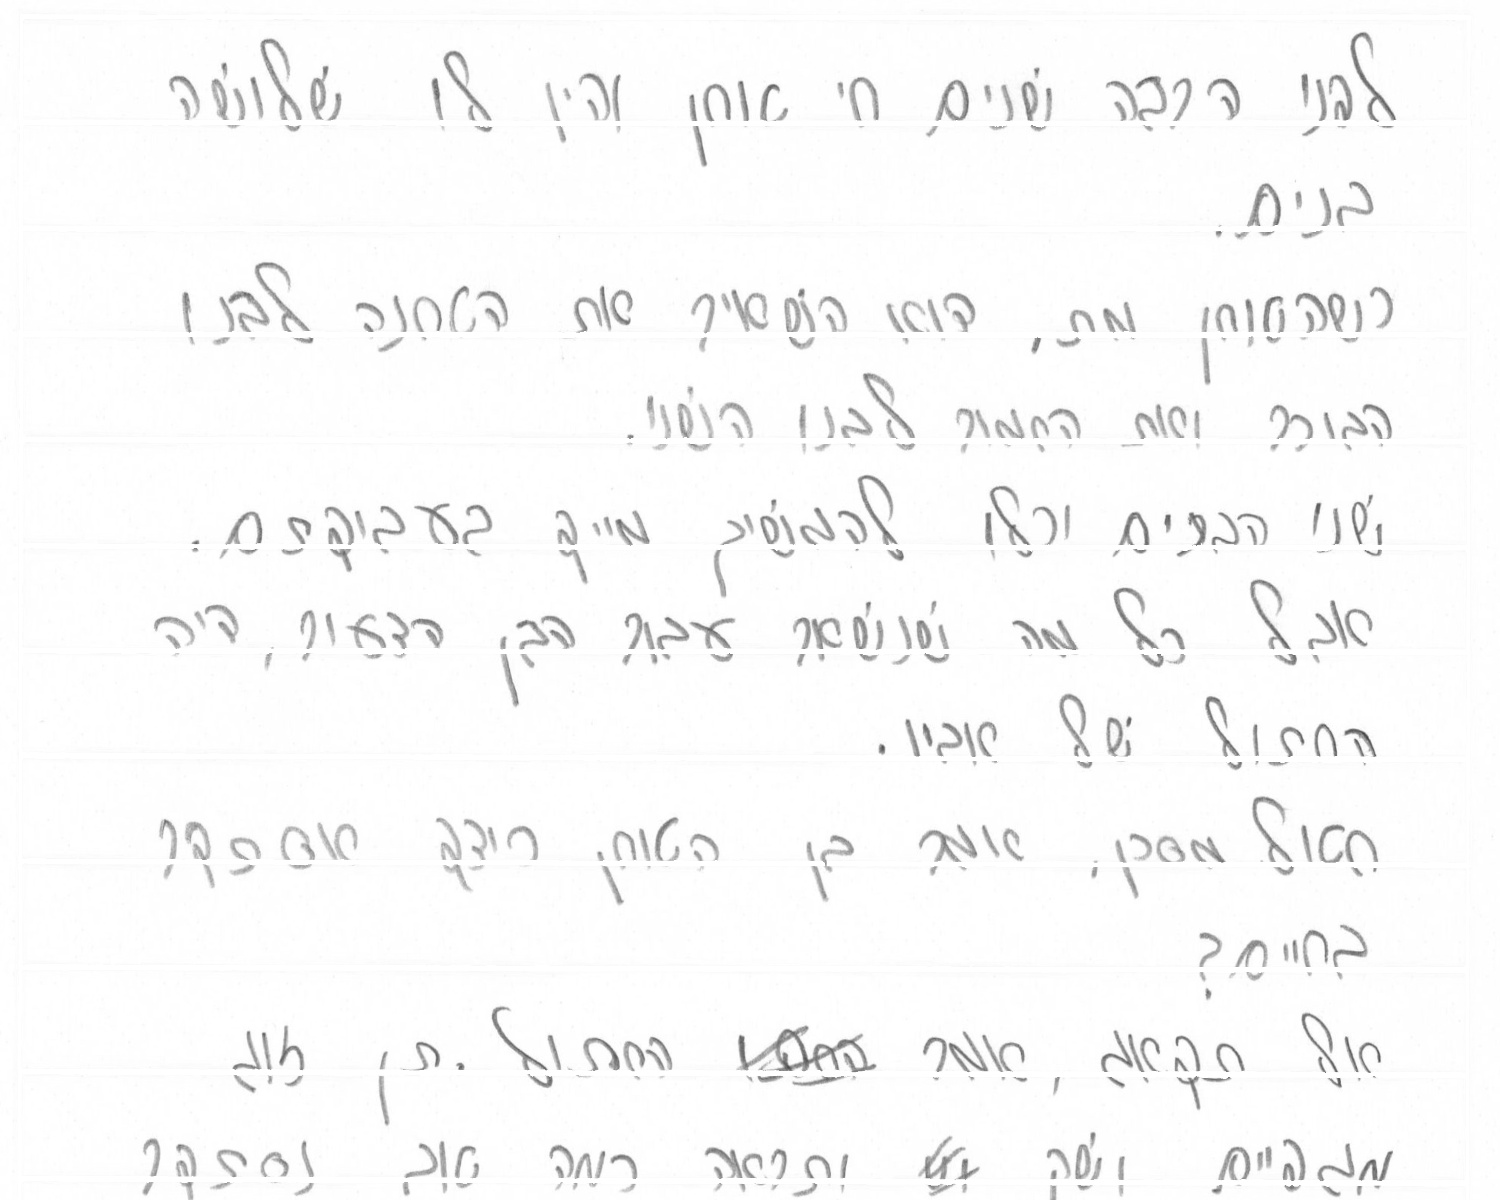 לפני הרבה שנים חי טוחן והיו לו שלושה
בנים.
כשהטוחן מת, הוא השאיר את הטחנה לבנו
הבוכר ואת החמור לבנו השני.
שני הבנים יכלו להמשיך מייד בעבוקתם.
אבל כל מה שנשאר עבור הבן הצעור, היה
החתול של אביו.
חטול מסכן, אמר בן הטוחן כיצד אסתקר
בחיים?
אל תקאג, אומר החתול. תן זוג
מגפיים ושק ותראה כמה טוב נסתקר